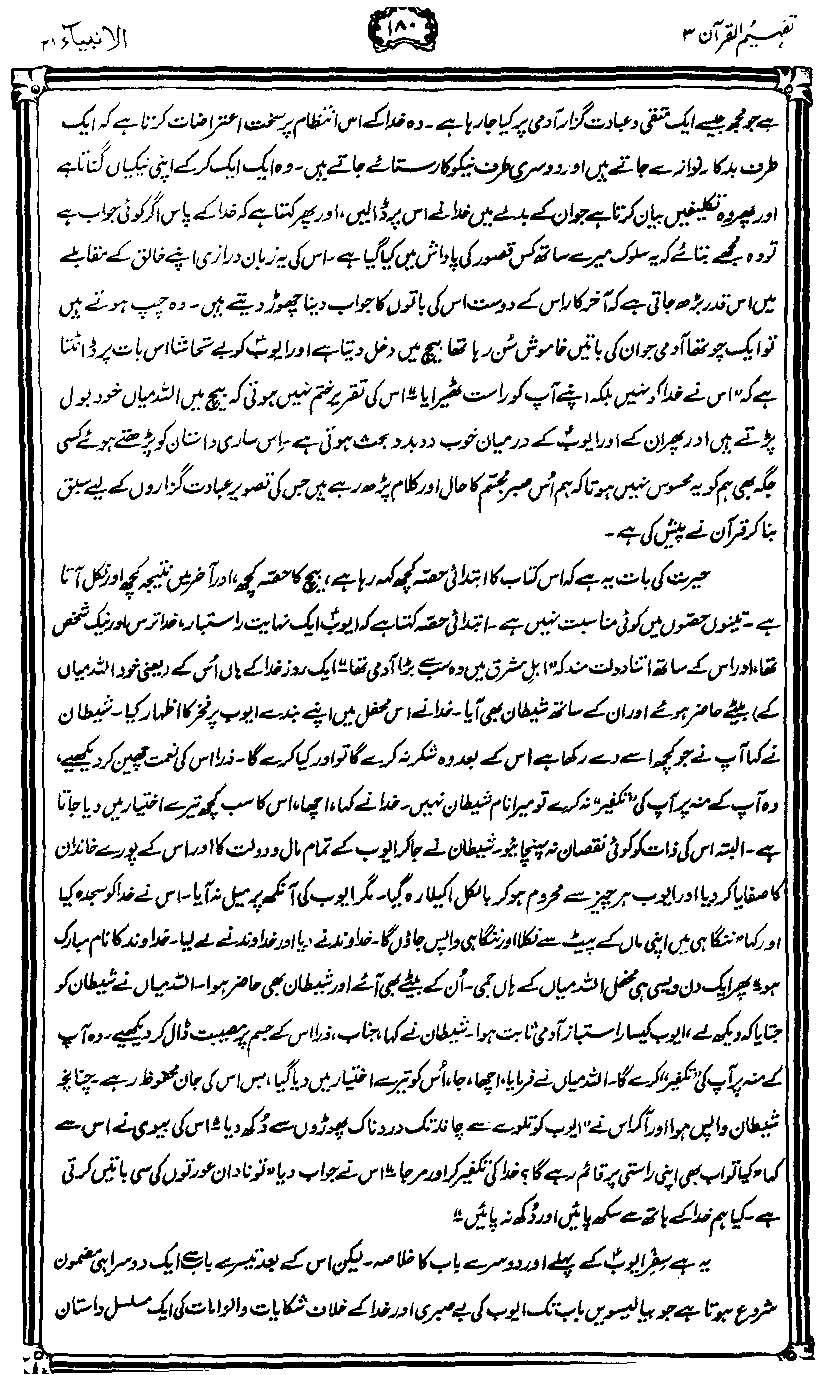 تفہیم القرآن ۳
۱۸۰
الانبیاء ۲۱
ہے جو مجھ جیسے ایک متقی و عبادت گزار آدمی پر کیا جا رہا ہے۔ وہ خدا کے اس انتظام پر سخت اعتراضات کرتا ہے کہ ایک
طرف بدکار نوازے جاتے ہیں اور دوسری طرف نیکوکار ستائے جاتے ہیں۔ وہ ایک ایک کر کے اپنی نیکیاں گناتا ہے
اور پھر وہ تکلیفیں بیان کرتا ہے جو ان کے بدلے میں خدا نے اس پر ڈالیں، اور پھر کہتا ہے کہ خدا کے پاس اگر کوئی جواب ہے
تو وہ مجھے بتائے کہ یہ سلوک میرے ساتھ کس قصور کی پاداش میں کیا گیا ہے۔ اس کی یہ زبان درازی اپنے خالق کے مقابلے
میں اس قدر بڑھ جاتی ہے کہ آخر کار اس کے دوست اس کی باتوں کا جواب دینا چھوڑ دیتے ہیں۔ وہ چپ ہوتے ہیں
تو ایک چوتھا آدمی جو ان کی باتیں خاموش سُن رہا تھا بیچ میں دخل دیتا ہے اور ایوبؑ کو بے تحاشا اس بات پر ڈانٹتا
ہے کہ ”اس نے خدا کو نہیں بلکہ اپنے آپ کو راست ٹھیرایا“ اس کی تقریر ختم نہیں ہوتی کہ بیچ میں اللہ میاں خود بول
پڑتے ہیں اور پھر ان کے اور ایوبؑ کے درمیان خوب دو بدو بحث ہوتی ہے۔ اِس ساری داستان کو پڑھتے ہوئے کسی
جگہ بھی ہم کو یہ محسوس نہیں ہوتا کہ ہم اُس صبرِ مجسّم کا حال اور کلام پڑھ رہے ہیں جس کی تصویر عبادت گزاروں کے لیے سبق
بنا کر قرآن نے پیش کی ہے۔
حیرت کی بات یہ ہے کہ اس کتاب کا ابتدائی حصّہ کچھ کہہ رہا ہے، بیچ کا حصّہ کچھ، اور آخر میں نتیجہ کچھ اور نکل آتا
ہے۔ تینوں حصّوں میں کوئی مناسبت نہیں ہے۔ ابتدائی حصّہ کہتا ہے کہ ایوبؑ ایک نہایت راستباز، خدا ترس اور نیک شخص
تھا، اور اس کے ساتھ اتنا دولت مند کہ ”اہلِ مشرق میں وہ سب سے بڑا آدمی تھا“ ایک روز خدا کے ہاں اُس کے (یعنی خود اللہ میاں
کے) بیٹے حاضر ہوئے اور ان کے ساتھ شیطان بھی آیا۔ خدا نے اس محفل میں اپنے بندے ایوب پر فخر کا اظہار کیا۔ شیطان
نے کہا آپ نے جو کچھ اسے دے رکھا ہے اس کے بعد وہ شکر نہ کرے گا تو اور کیا کرے گا۔ ذرا اس کی نعمت چھین کر دیکھیے،
وہ آپ کے منہ پر آپ کی ”تکفیر“ نہ کرے تو میرا نام شیطان نہیں۔ خدا نے کہا، اچھا، اس کا سب کچھ تیرے اختیار میں دیا جاتا
ہے۔ البتہ اس کی ذات کو کوئی نقصان نہ پہنچائیو۔ شیطان نے جا کر ایوب کے تمام مال و دولت کا اور اس کے پورے خاندان
کا صفایا کر دیا اور ایوب ہر چیز سے محروم ہو کر بالکل اکیلا رہ گیا۔ مگر ایوب کی آنکھ پر میل نہ آیا۔ اس نے خدا کو سجدہ کیا
اور کہا ”ننگا ہی میں اپنی ماں کے پیٹ سے نکلا اور ننگا ہی واپس جاؤں گا۔ خداوند نے دیا اور خداوند نے لے لیا۔ خداوند کا نام مبارک
ہو“ پھر ایک دن ویسی ہی محفل اللہ میاں کے ہاں جمی۔ اُن کے بیٹے بھی آئے اور شیطان بھی حاضر ہوا۔ اللہ میاں نے شیطان کو
جتایا کہ دیکھ لے، ایوب کیسا راستباز آدمی ثابت ہوا۔ شیطان نے کہا، جناب، ذرا اس کے جسم پر مصیبت ڈال کر دیکھیے۔ وہ آپ
کے منہ پر آپ کی ”تکفیر“ کرے گا۔ اللہ میاں نے فرمایا، اچھا، جا، اُس کو تیرے اختیار میں دیا گیا، بس اس کی جان محفوظ رہے۔ چنانچہ
شیطان واپس ہوا اور آکر اس نے ”ایوب کو تلوے سے چاند تک دردناک پھوڑوں سے دُکھ دیا“ اس کی بیوی نے اس سے
کہا ”کیا تو اب بھی اپنی راستی پر قائم رہے گا؟ خدا کی تکفیر کر اور مر جا“ اس نے جواب دیا ”تو نادان عورتوں کی سی باتیں کرتی
ہے۔ کیا ہم خدا کے ہاتھ سے سکھ پائیں اور دُکھ نہ پائیں“
یہ ہے سِفرِ ایوبؑ کے پہلے اور دوسرے باب کا خلاصہ۔ لیکن اس کے بعد تیسرے باب سے ایک دوسرا ہی مضمون
شروع ہوتا ہے جو بیالیسویں باب تک ایوب کی بے صبری اور خدا کے خلاف شکایات و الزامات کی ایک مسلسل داستان